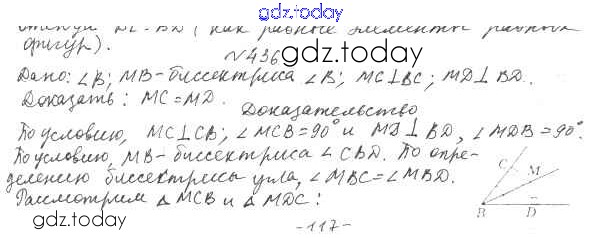 gdz.today
откуда DC=BD (как равные элементы равных
фигур).
gdz.today
№436
Дано: ∠B; MB-биссектриса ∠B; MC⊥BC; MD⊥BD.
Доказать: MC=MD.
Доказательство
По условию, MC⊥CB; ∠MCB=90° и MD⊥BD, ∠MDB=90°.
По условию, MB-биссектриса ∠CBD. По опре-
делению биссектрисы угла, ∠MBC=∠MBD.
Рассмотрим △MCB и △MDC:
C M
B D
gdz.today
-117-
gdz.today